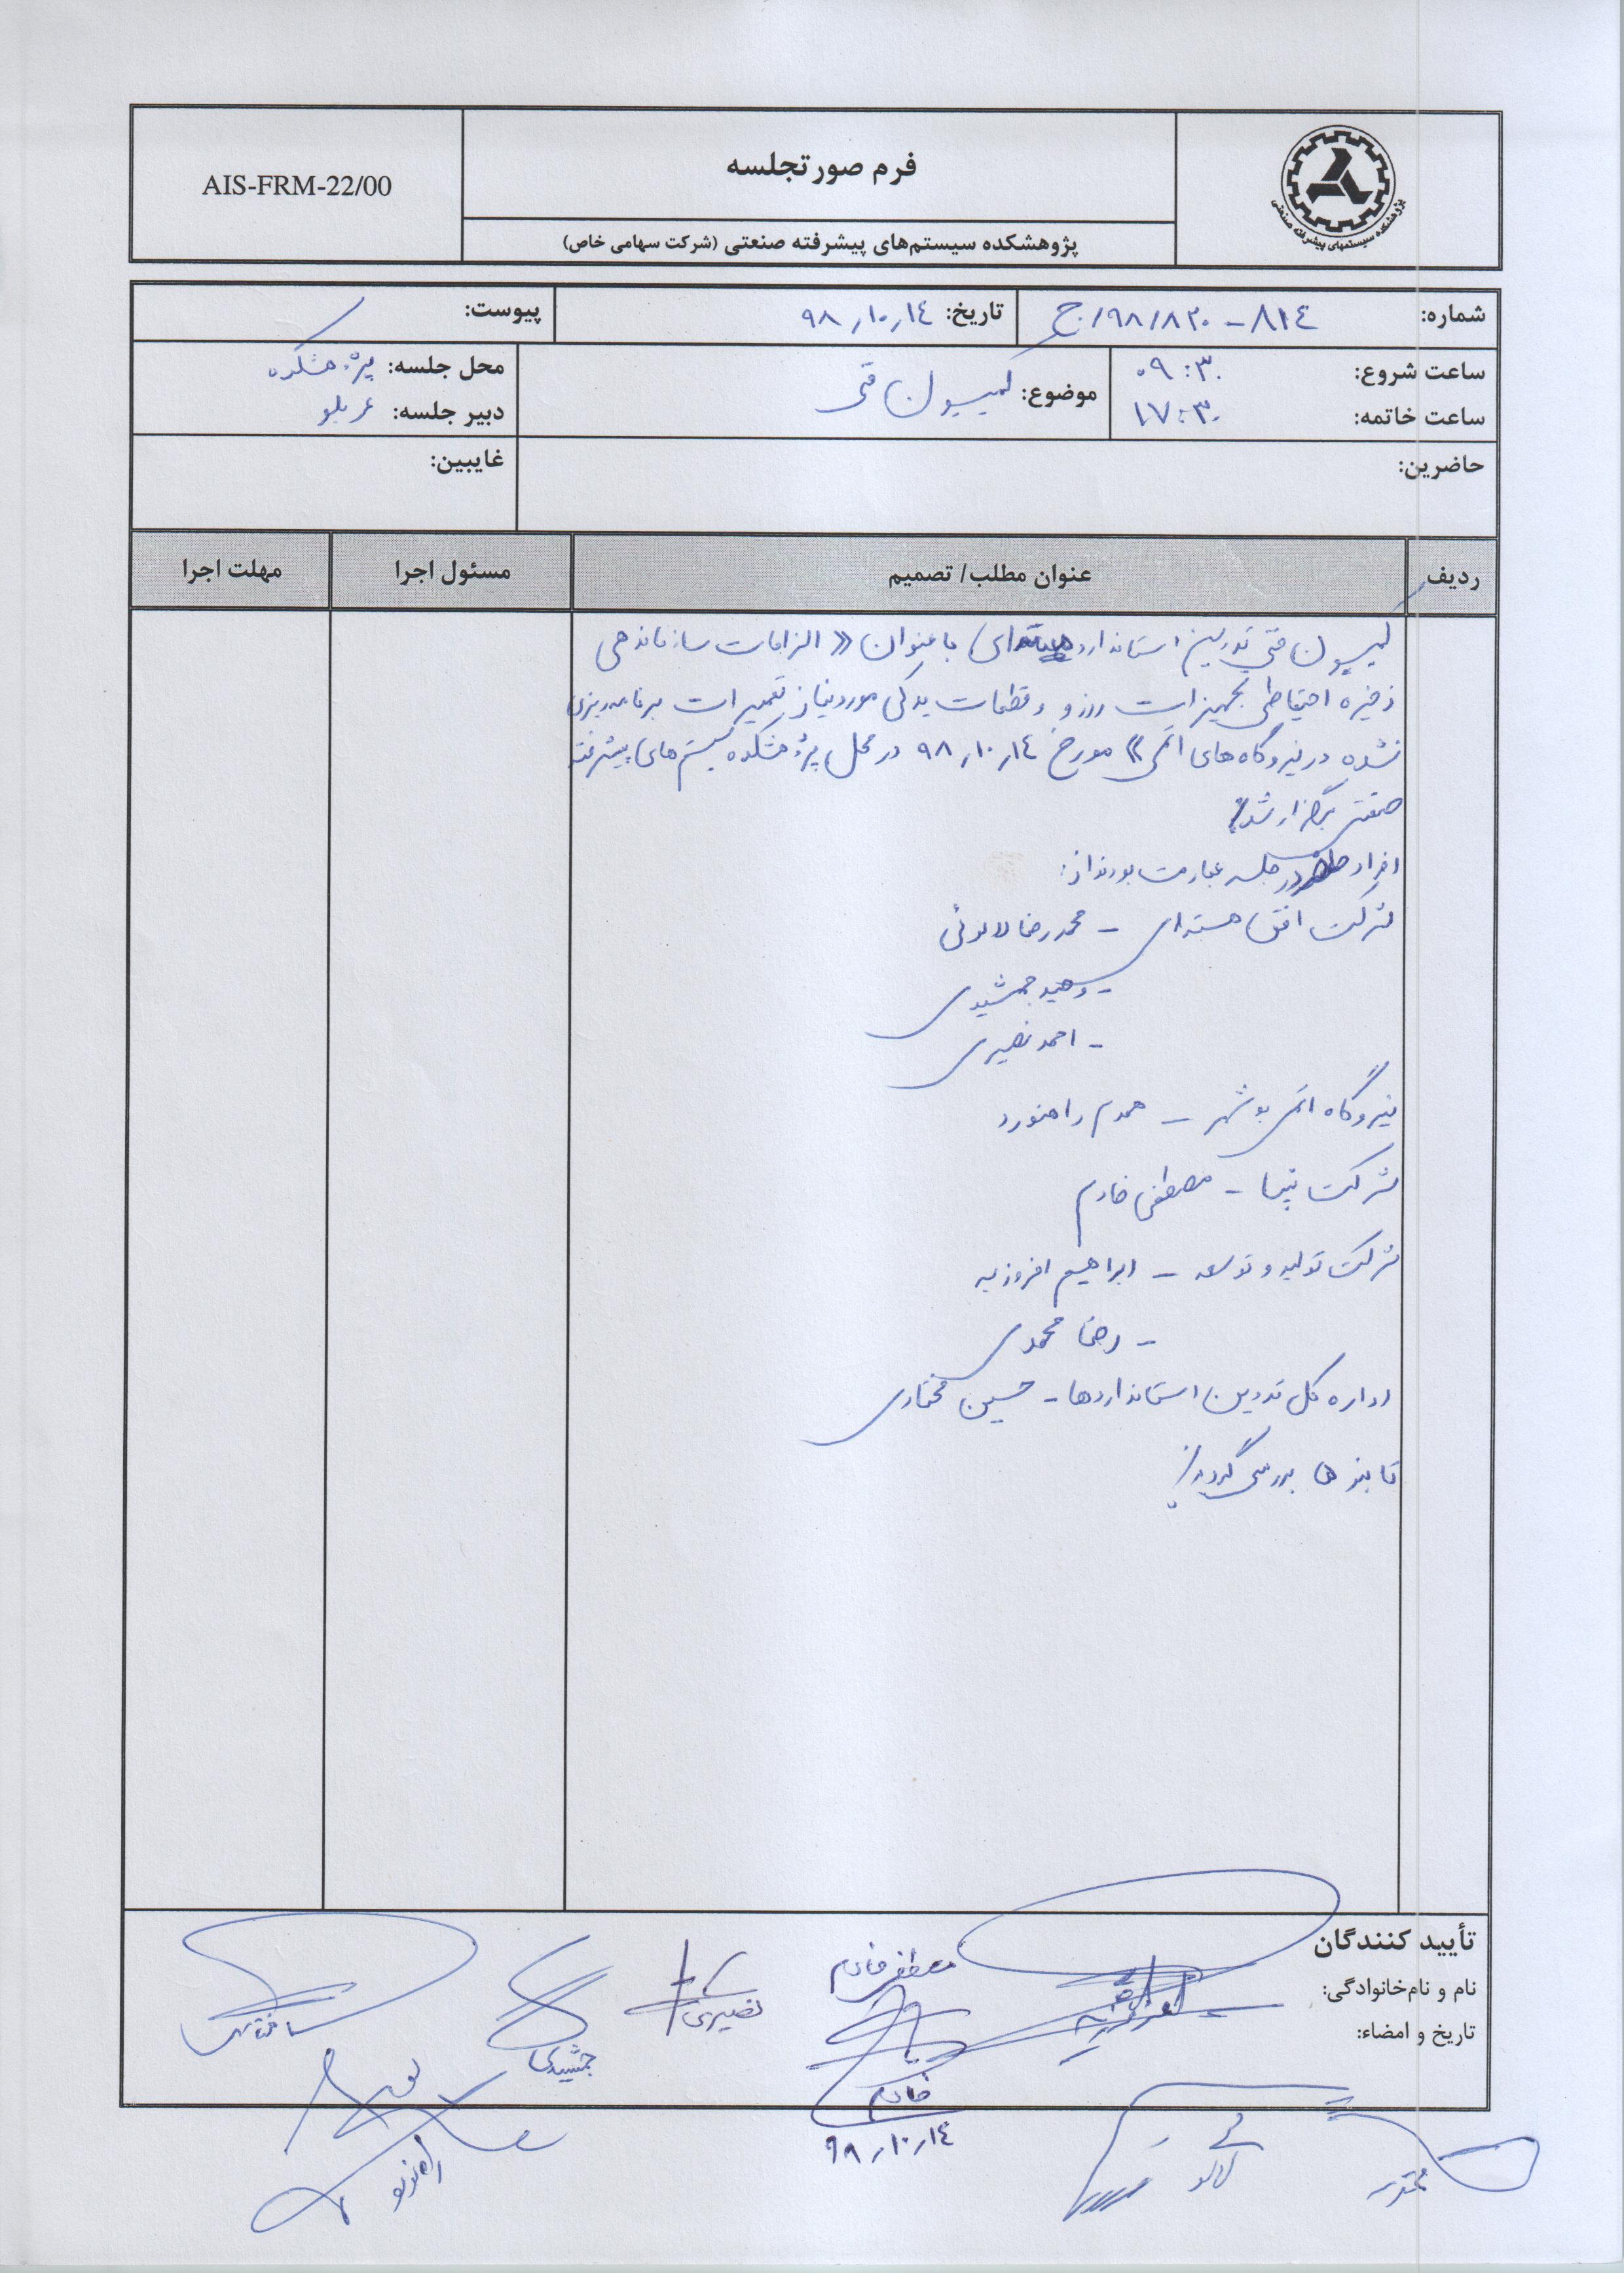 فرم صورتجلسه
AIS-FRM-22/00
پژوهشکده سیستم‌های پیشرفته صنعتی (شرکت سهامی خاص)
پژوهشکده سیستمهای پیشرفته صنعتی
شماره: ۸۱۴-۹۸/۸۲۰/ج
تاریخ: ۹۸٫۱۰٫۱۴
پیوست:
ساعت شروع: ۰۹:۳۰
ساعت خاتمه: ۱۷:۳۰
موضوع: کمیسیون فنی
محل جلسه: پژوهشکده
دبیر جلسه:
حاضرین:
غایبین:
ردیف عنوان مطلب/ تصمیم مسئول اجرا مهلت اجرا
کمیسیون فنی تدوین استاندارد با عنوان « الزامات سازماندهی
ذخیره احتیاطی تجهیزات رزرو و قطعات یدکی مورد نیاز تعمیرات برنامه‌ریزی
نشده در نیروگاه‌های اتمی» مورخ ۹۸٫۱۰٫۱۴ در محل پژوهشکده سیستم‌های پیشرفته
صنعتی برگزار شد.
افراد حاضر در جلسه عبارت بودند از:
شرکت افق هسته‌ای - محمدرضا لالوئی
- وحید جمشیدی
- احمد نصیری
نیروگاه اتمی بوشهر - همدم راهنورد
شرکت تپنا - مصطفی خادم
شرکت تولید و توسعه - ابراهیم افروزیه
- رضا محمدی
اداره کل تدوین استانداردها - حسین مختاری
تا بند ۵ بررسی گردید.
تأیید کنندگان
نام و نام‌خانوادگی:
تاریخ و امضاء:
مصطفی خادم
نصیری
جمشیدی
خادم
۹۸٫۱۰٫۱۴
راهنورد